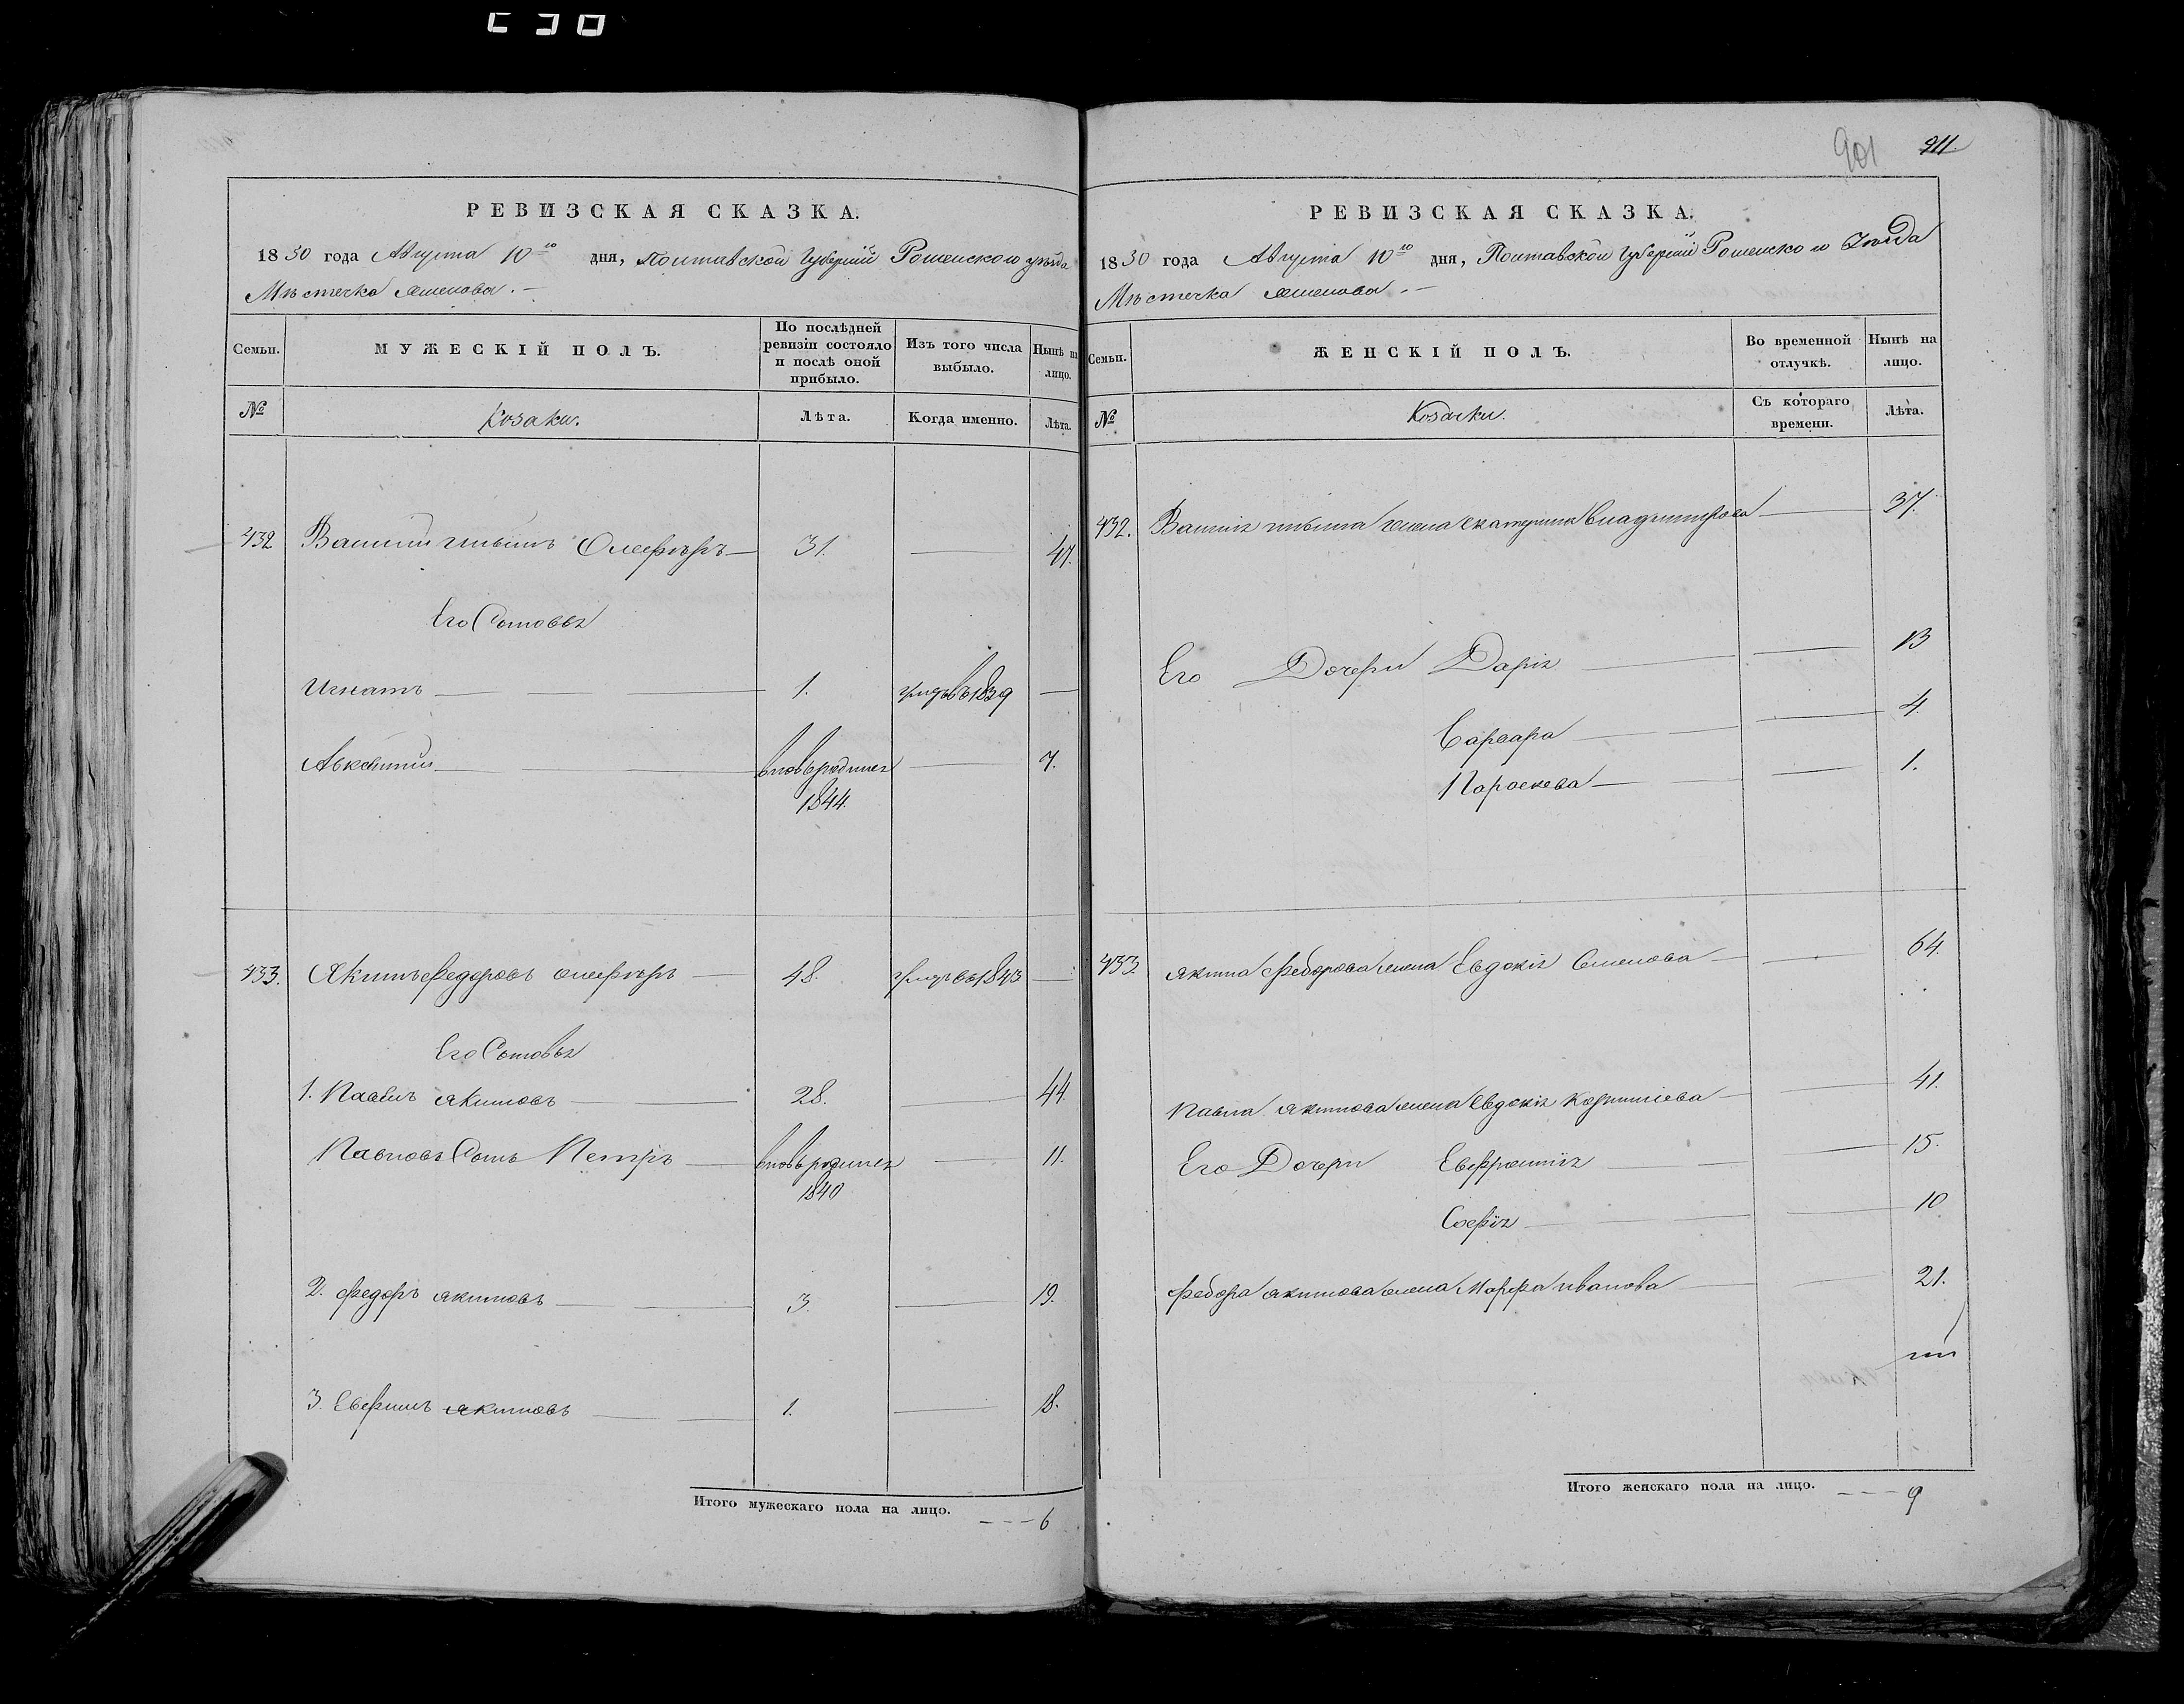 901 911.
РЕВИЗСКАЯ СКАЗКА.
1850 года Августа 10го дня, Полтавской Губернии Роменского уезда
Местечка Смелова.
Семьи. МУЖЕСКІЙ ПОЛЪ. По послѣдней ревизіи состояло и послѣ оной прибыло. Изъ того числа выбыло. Нынѣ на лицо.
№ Козаки. Лѣта. Когда именно. Лѣта.
432 Василий Олефѣръ 31. 47.
Его Сыновья
Игнатъ 1. 1839
Авксентий вновьродился 7.
1844.
433. Якимъ Федоровъ Олефѣръ 48. 1843
Его Сыновья
1. Павелъ Якимовъ 28. 44.
Павловъ Сынъ Петръ вновьродился 11.
1840
2. Федоръ Якимовъ 3. 19.
3. Якимовъ 1. 18.
Итого мужескаго пола на лицо. 6
РЕВИЗСКАЯ СКАЗКА.
1850 года Августа 10го дня, Полтавской Губернии Роменского Уезда
Местечка Смелова.
Семьи. ЖЕНСКІЙ ПОЛЪ. Во временной отлучкѣ. Нынѣ на лицо.
№ Козачки. Съ котораго времени. Лѣта.
432. жена Екатерина Владимирова 37.
Его Дочери Дарія 13
Варвара 4.
Параскева 1.
433. Якима Федорова жена Евдокія Семенова 64.
Павла Якимова жена Евдокія Корниліева 41.
Его Дочери Евфросинія 15.
Софія 10
Федора Якимова жена Марфа Иванова 21.
Итого женскаго пола на лицо. 9